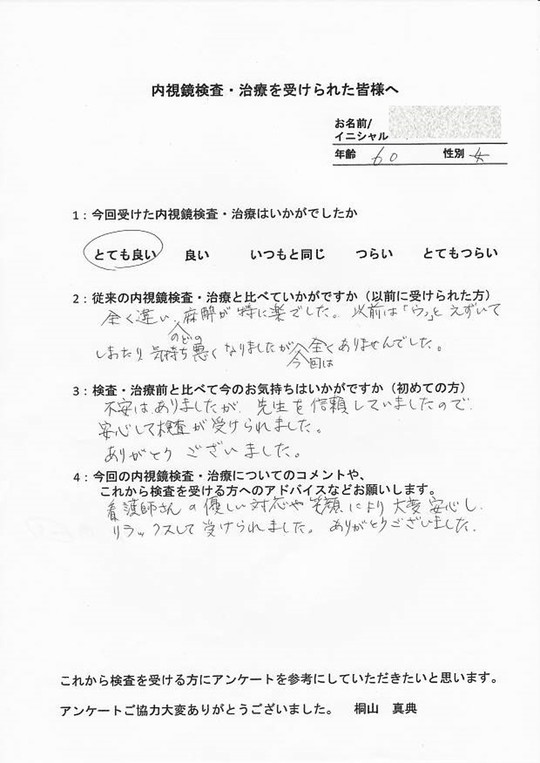 内視鏡検査・治療を受けられた皆様へ
お名前/
イニシャル
年齢 60 性別 女
1：今回受けた内視鏡検査・治療はいかがでしたか
とても良い 良い いつもと同じ つらい とてもつらい
2：従来の内視鏡検査・治療と比べていかがですか（以前に受けられた方）
全く違い、のどの麻酔が特に楽でした。以前は「ウッ」とえずいて
しまったり気持ち悪くなりましたが今回は全くありませんでした。
3：検査・治療前と比べて今のお気持ちはいかがですか（初めての方）
不安はありましたが、先生を信頼していましたので、
安心して検査が受けられました。
ありがとうございました。
4：今回の内視鏡検査・治療についてのコメントや、
これから検査を受ける方へのアドバイスなどお願いします。
看護師さんの優しい対応や笑顔により大変安心し、
リラックスして受けられました。ありがとうございました。
これから検査を受ける方にアンケートを参考にしていただきたいと思います。
アンケートご協力大変ありがとうございました。 桐山 真典